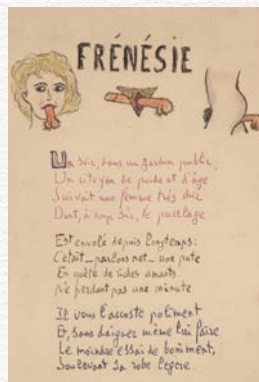 FRÉNÉSIE
Un soir, dans un jardin public,
Un citoyen de poids et d'âge
Suivait une femme très chic
Dont, à coup sûr, le pucelage
Est envolé depuis longtemps:
C'était _ parlons net _ une pute
En quête de riches amants.
Ne perdant pas une minute
Il vous l'accoste poliment
Et, sans daigner même lui faire
Le moindre essai de boniment,
Soulevant sa robe légère